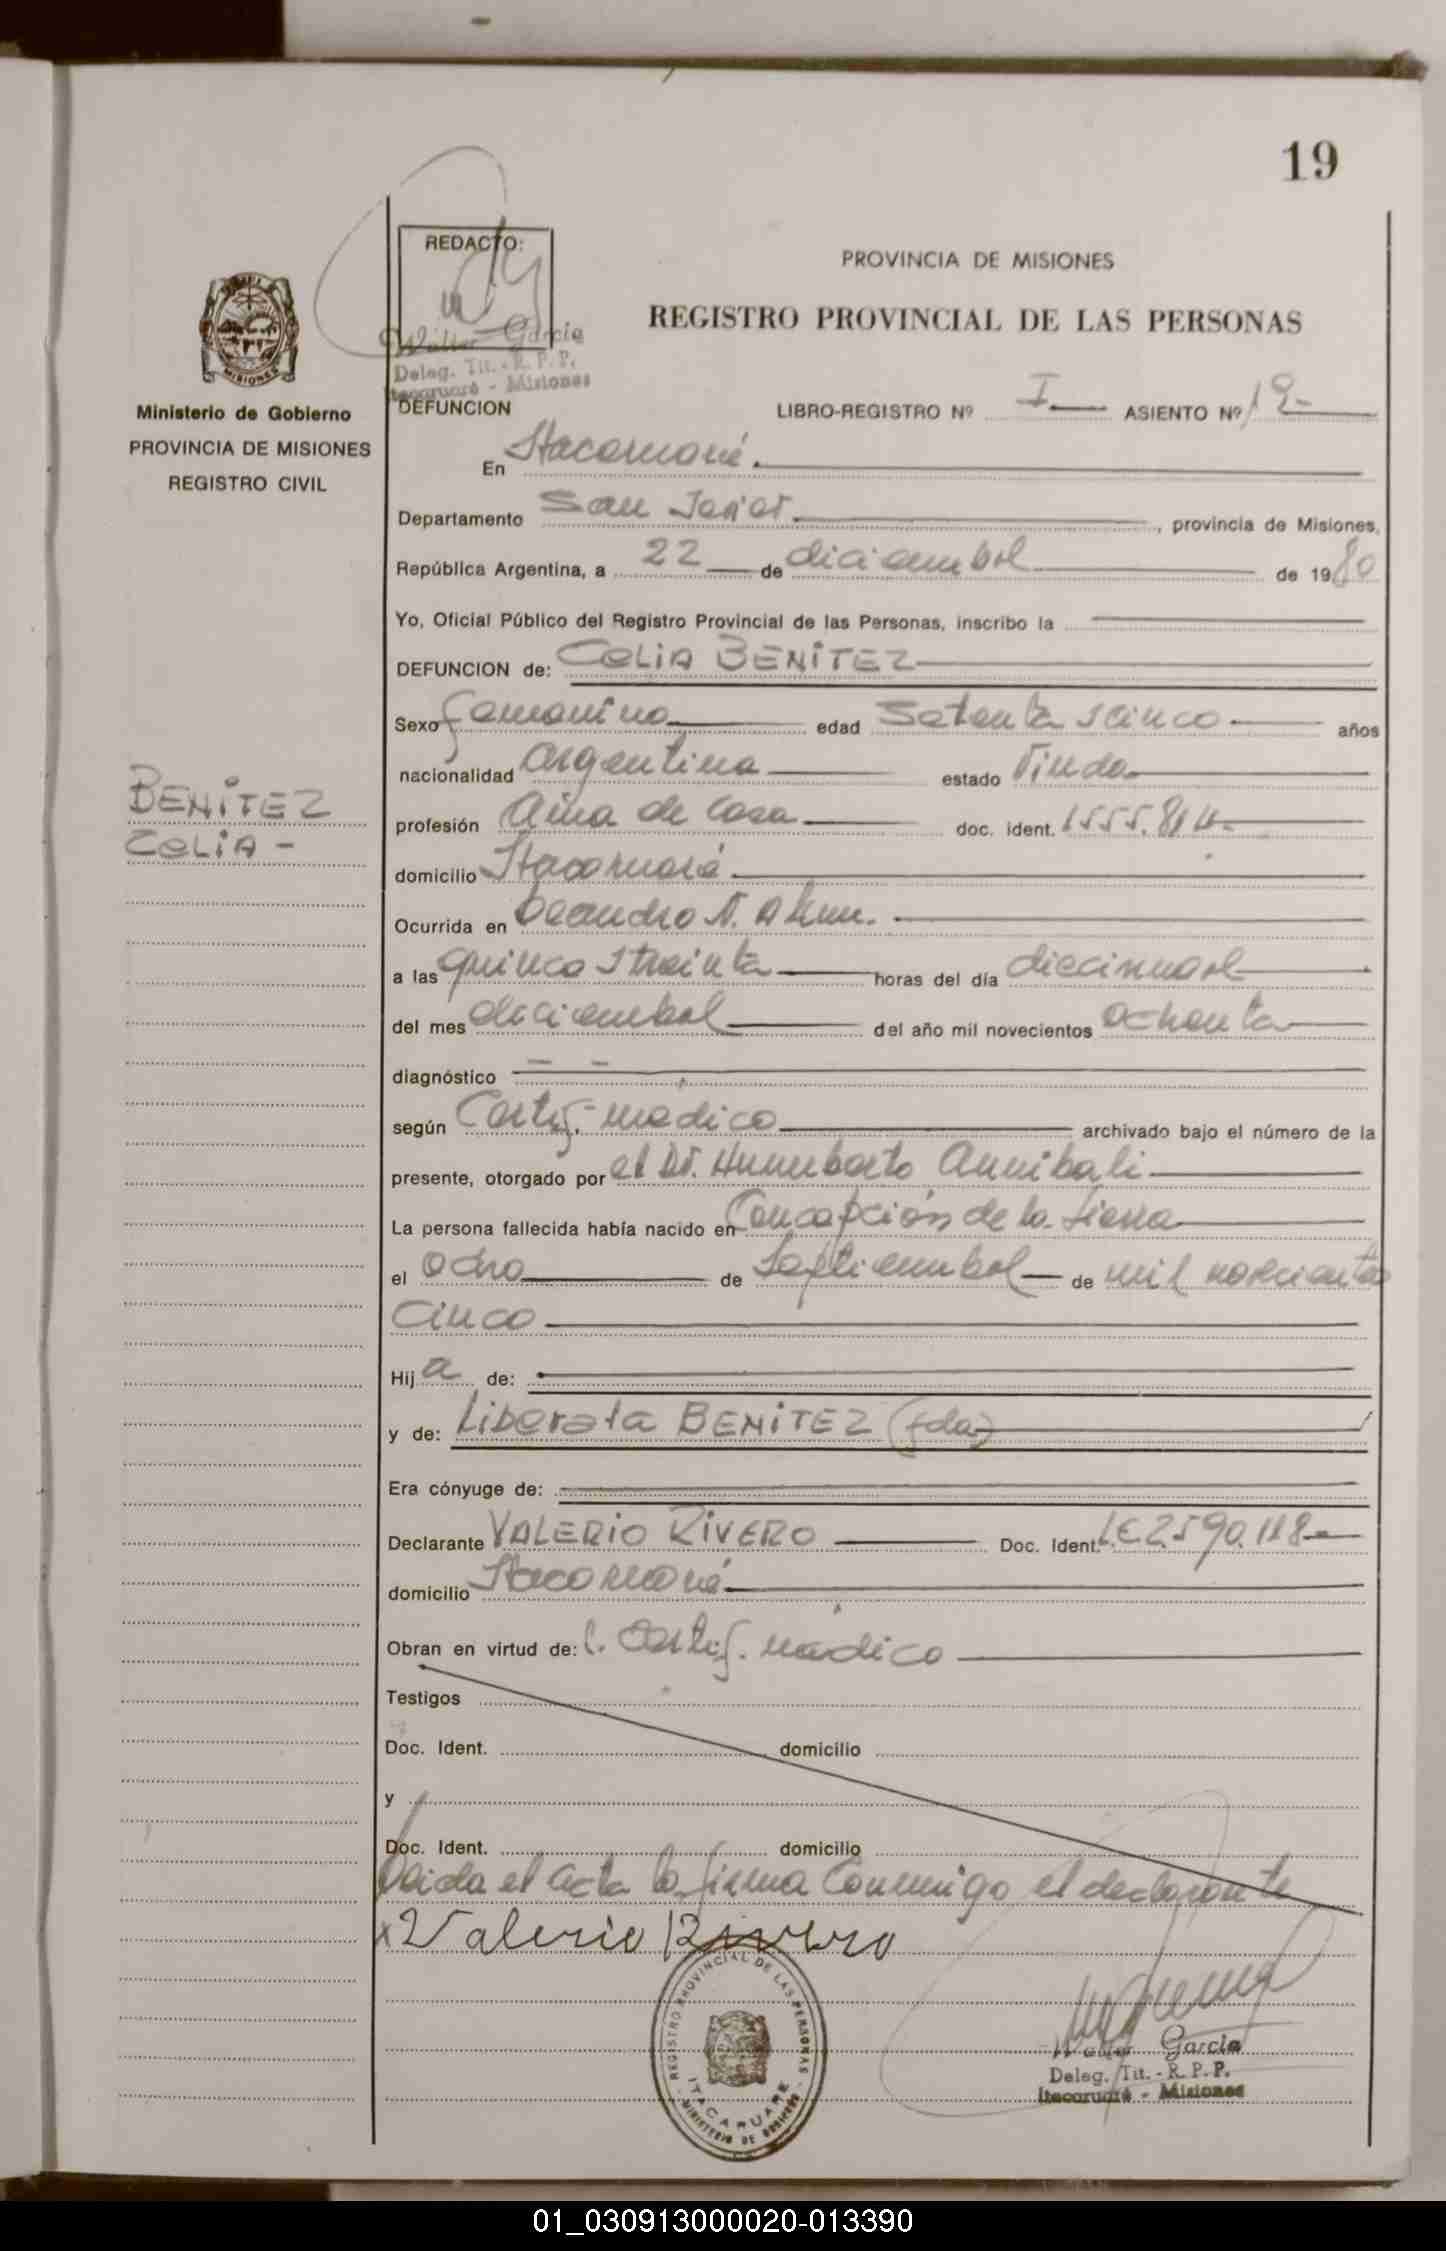 19
REDACTO:
PROVINCIA DE MISIONES
REGISTRO PROVINCIAL DE LAS PERSONAS
Walter Garcia
Deleg. Tit. - R. P. P.
Itacaruaré - Misiones
Ministerio de Gobierno
PROVINCIA DE MISIONES
REGISTRO CIVIL
DEFUNCION
LIBRO-REGISTRO Nº I ASIENTO Nº 19-
En Itacaruaré.
Departamento San Javier, provincia de Misiones,
República Argentina, a 22 de diciembre de 1980
Yo, Oficial Público del Registro Provincial de las Personas, inscribo la
DEFUNCION de: CELIA BENITEZ
Sexo femenino edad setenta y cinco años
nacionalidad argentina estado Viuda
BENITEZ
CELIA -
profesión Ama de Casa doc. ident. 1555.814-
domicilio Itacaruaré
Ocurrida en Leandro N. Alem.
a las quince y treinta horas del día diecinueve
del mes diciembre del año mil novecientos ochenta
diagnóstico - -
según Certif. médico archivado bajo el número de la
presente, otorgado por el Dr. Humberto Annibali
La persona fallecida había nacido en Concepción de la Sierra
el ocho de Septiembre de mil novecientos
cinco
Hija de:
y de: Liberata BENITEZ (fda)
Era cónyuge de:
Declarante VALERIO RIVERO Doc. Ident. L.E. 2.590.118-
domicilio Itacaruaré
Obran en virtud de: C. Certif. médico
Testigos
Doc. Ident. domicilio
y
Doc. Ident. domicilio
Leida el acta la firma Conmigo el declarante
x Valerio Rivero
REGISTRO PROVINCIAL DE LAS PERSONAS
ITACARUARE
MINISTERIO DE GOBIERNO
Walter Garcia
Deleg. Tit. - R. P. P.
Itacaruaré - Misiones
01_030913000020-013390